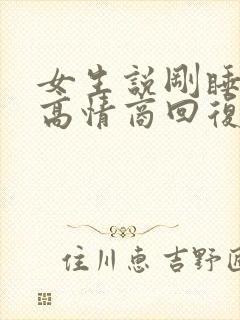 女生說剛睡
高情商回復
住川惠 吉野匠